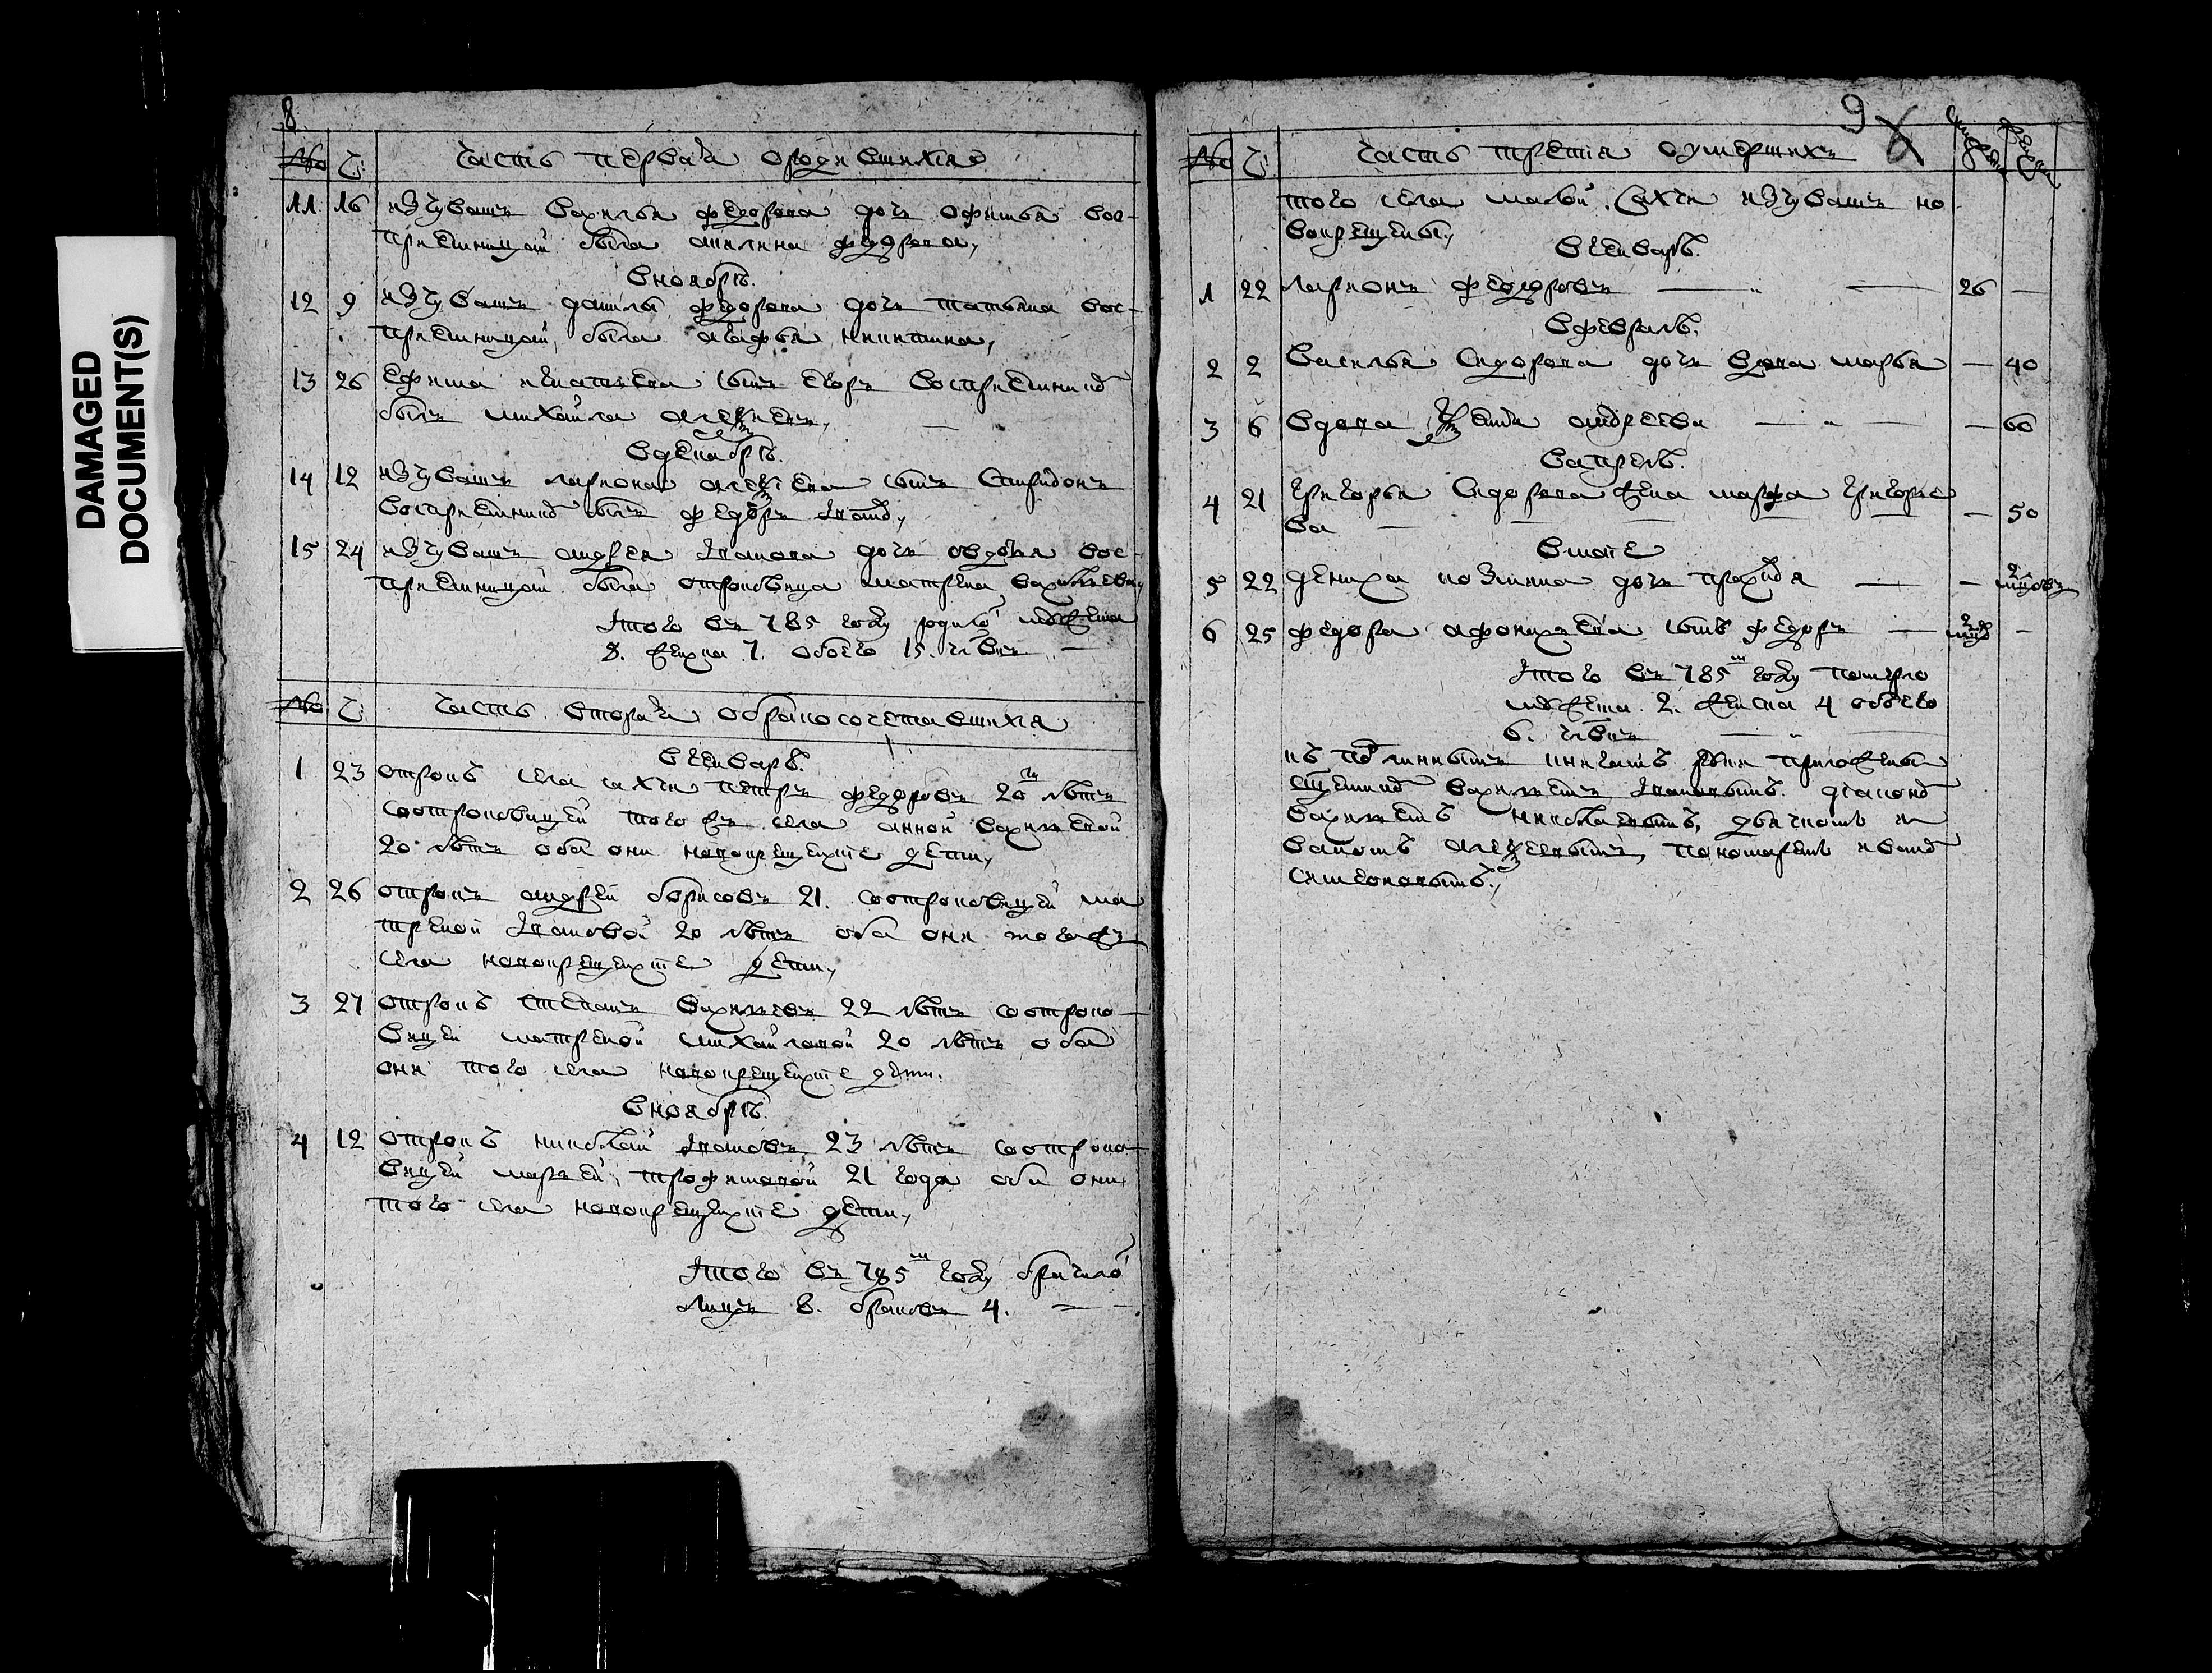 DAMAGED
DOCUMENT(S)
8
№ Ч: Часть перваѧ ородившихся
11 16 изчувашъ Василья федорова дочь офимья вос-
приемницою была акилина федорова,
Вноябрѣ.
12 9 изчувашъ данилы федорова дочь татьяна вос-
приемницою была агафья никитина,
13 26 Ефима игнатьева сынъ егоръ восприемникъ
былъ михайла алексѣевъ,
Вдекабрѣ.
14 12 изчувашъ лариона алексѣева сынъ спиридонъ
восприемникъ былъ федоръ
15 24 изчувашъ андрея дочь овдотья вос-
приемницою была отроковица матрена васильева,
Итого въ 785 году родилос мужеска
8. женска 7. обоего 15. члвкъ
№ Ч: Часть втораѧ обракосочетавшихся
Вгенварѣ.
1 23 отрокъ села сахчи петръ федоровъ 20 лѣтъ
сотроковицей того жъ села анной васильевой
20 лѣтъ оба они новокрещенские дети,
2 26 отрокъ андрей борисовъ 21. сотроковицей ма
треной 20 лѣтъ оба они того жъ
села новокрещенские дети,
3 27 отрокъ степанъ васильевъ 22 лѣтъ сотроко
вицей матреной михайловой 20 лѣтъ оба
они того села новокрещенские дети.
Вноябрѣ.
4 12 отрокъ николай 23 лѣтъ сотроко
вицей марьей трофимовой 21 года оба они
того села новокрещенские дети,
Итого въ 785м году брачилос
лицъ 8. браковъ 4.
9
№ Ч: Часть третія оумершихъ
того села малой Сахчи изчувашъ но
вокрещены,
Вгенварѣ.
1 22 ларионъ федоровъ — 26 —
Вфевралѣ.
2 2 Василья Сидорова дочь вдова марья — 40
3 6 вдова андреева — 60
Вапрелѣ.
4 21 григорья Сидорова жена марфа григорье
ва — 50
Вмаіе
5 22 дениса козмина дочь —
6 25 федора афонасьева сынъ федоръ —
Итого въ 785м году померло
мужеска. 2. женска 4 обоего
6. члвкъ
къ подлиннымъ книгамъ руки приложены
священник Васильемъ дьяконъ
Васильемъ николаевымъ, дьячкомъ и
ваномъ алексѣевымъ, пономаремъ иваном
симеоновымъ,